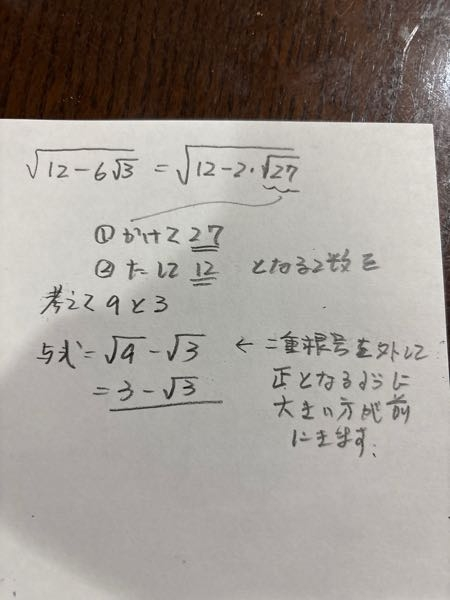 √(12-6√3) = √(12-2・√27)
① かけて 27
② たして 12 となる2数を
考えて 9と3
与式 = √9 - √3 ← 二重根号を外して
= 3 - √3 正となるように
大きい方が前
にきます.